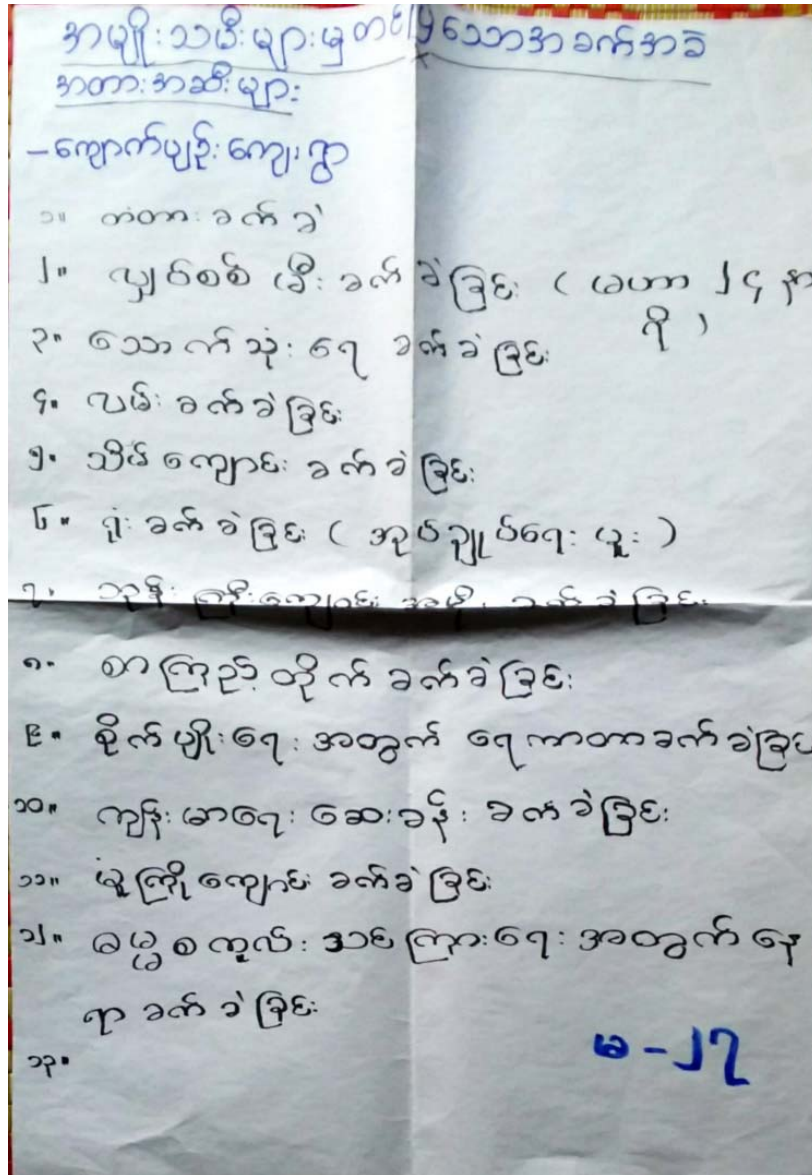 အမျိုးသမီးများမှတင်ပြသောအခက်အခဲ
အတားအဆီးများ
-ကျောက်ပျဉ်းကျေးရွာ
၁။ တံတား ခက်ခဲ
၂။ လျှပ်စစ်မီး ခက်ခဲခြင်း (မဟာ ၂၄ နာ
ရီ)
၃။ သောက်သုံးရေ ခက်ခဲခြင်း
၄။ လမ်း ခက်ခဲခြင်း
၅။ သိမ်ကျောင်း ခက်ခဲခြင်း
၆။ ရုံး ခက်ခဲခြင်း (အုပ်ချုပ်ရေးမှူး)
၇။ ဘုန်းကြီးကျောင်း အမိုး ခက်ခဲခြင်း
၈။ စာကြည့်တိုက် ခက်ခဲခြင်း
၉။ စိုက်ပျိုးရေးအတွက် ရေကာတာခက်ခဲခြင်
၁၀။ ကျန်းမာရေး ဆေးခန်း ခက်ခဲခြင်း
၁၁။ မူကြိုကျောင်း ခက်ခဲခြင်း
၁၂။ ဓမ္မစကူလ်းသင်ကြားရေးအတွက် နေ
ရာ ခက်ခဲခြင်း
၁၃။
မ-၂၇